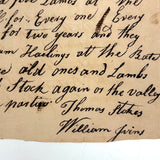 five Lambs at the
for. Every one & Every
for two years and they
Hastings at the Rate
old ones and Lambs
Stock again or the valley
parties Thomas Stikes
William Ivins